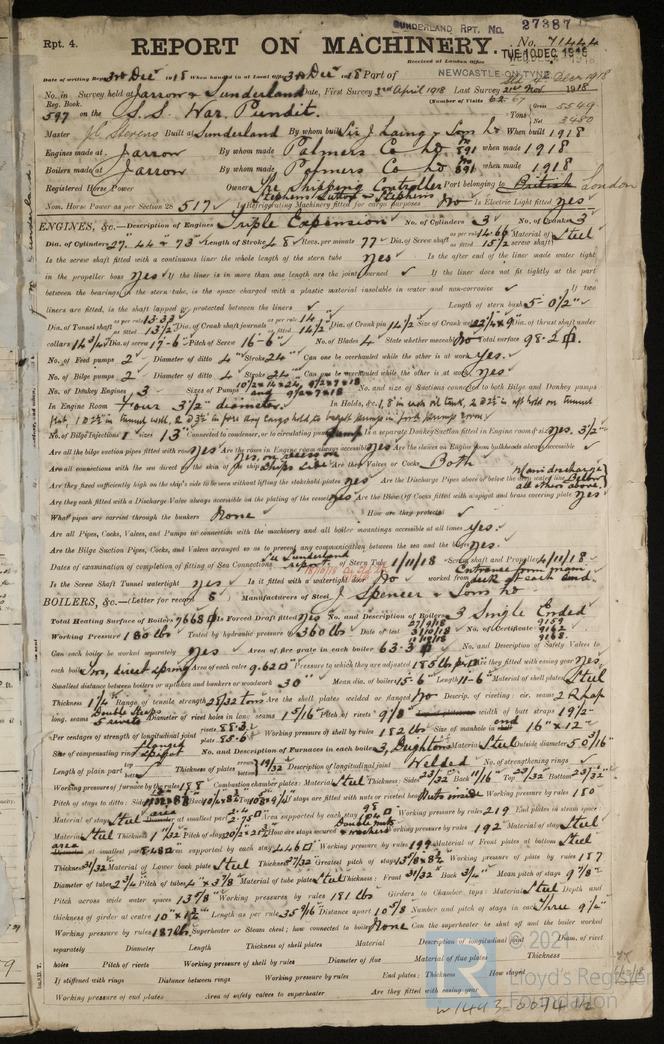 SUNDERLAND RPT. No. 27387
Rpt. 4.
REPORT ON MACHINERY.
No. 71444
Received at London Office TUE. 10 DEC. 1918
NEWCASTLE-ON-TYNE
Date of writing Report 3rd Dec 1918 When handed in at Local Office 3rd Dec 1918 Port of
No. in Survey held at Jarrow & Sunderland Date, First Survey 3rd April 1918 Last Survey Nov 1918
Reg. Book. (Number of Visits
597 on the S.S. War Pundit. Tons Gross 5549 Net 3480
Master Stevens Built at Sunderland By whom built Sir J Laing & Sons Ld When built 1918
Engines made at Jarrow By whom made Palmers Co Ld No 891 when made 1918
Boilers made at Jarrow By whom made Palmers Co Ld No 891 when made 1918
Registered Horse Power Owners The Shipping Controller Port belonging to British London
Stephens Sutton & Stephens
Nom. Horse Power as per Section 28 517 Is Refrigerating Machinery fitted for cargo purposes No Is Electric Light fitted Yes
ENGINES, &c.—Description of Engines Triple Expansion No. of Cylinders 3 No. of Cranks 3
Dia. of Cylinders 27. 44 & 73 Length of Stroke 48 Revs. per minute 77 Dia. of Screw shaft as per rule 14.66 as fitted 15 1/2 Material of screw shaft Steel
Is the screw shaft fitted with a continuous liner the whole length of the stern tube yes Is the after end of the liner made water tight
in the propeller boss yes If the liner is in more than one length are the joints burned If the liner does not fit tightly at the part
between the bearings in the stern tube, is the space charged with a plastic material insoluble in water and non-corrosive If two
liners are fitted, is the shaft lapped or protected between the liners Length of stern bush 5-0 1/2"
Dia. of Tunnel shaft as per rule 13.33 as fitted 13 1/2 Dia. of Crank shaft journals as per rule 14 as fitted 14 1/2" Dia. of Crank pin 14 1/2 Size of Crank webs 22 1/4 x 9" Dia. of thrust shaft under
collars 14 3/4 Dia. of screw 17-6 Pitch of Screw 16-6 No. of Blades 4 State whether moveable No Total surface 98.2
No. of Feed pumps 2 Diameter of ditto 4 Stroke 24" Can one be overhauled while the other is at work Yes.
No. of Bilge pumps 2 Diameter of ditto 4 Stroke 24" Can one be overhauled while the other is at work Yes
No. of Donkey Engines 3 Sizes of Pumps 10 1/2 x 14 x 24, 9 1/2 x 7 x 18 and 9 1/2 x 7 x 18 No. and size of Suctions connected to both Bilge and Donkey pumps
In Engine Room Four 3 1/2" diameter. In Holds, &c.
No. of Bilge Injections 1 sizes 13" Connected to condenser, or to circulating pump pump Is a separate Donkey Suction fitted in Engine room & size Yes. 3 1/2"
Are all the bilge suction pipes fitted with roses Yes Are the roses in Engine room always accessible Yes Are the sluices on Engine room bulkheads always accessible
Are all connections with the sea direct on the skin of the ship Ships side Are they Valves or Cocks Both
Are they fixed sufficiently high on the ship's side to be seen without lifting the stokehold plates yes Are the Discharge Pipes above or below the deep water line Main discharge Below all others above.
Are they each fitted with a Discharge Valve always accessible on the plating of the vessel yes Are the Blow Off Cocks fitted with a spigot and brass covering plate yes
What pipes are carried through the bunkers None How are they protected
Are all Pipes, Cocks, Valves, and Pumps in connection with the machinery and all boiler mountings accessible at all times Yes.
Are the Bilge Suction Pipes, Cocks, and Valves arranged so as to prevent any communication between the sea and the Yes.
Dates of examination of completion of fitting of Sea Connections See Sunderland report of Stern Tube 1/10/18 Screw shaft and Propeller 4/10/18
Is the Screw Shaft Tunnel watertight yes Is it fitted with a watertight door No worked from Entrance from main deck at each end.
BOILERS, &c.—(Letter for record S) Manufacturers of Steel J Spencer & Sons Ld
Total Heating Surface of Boilers 7668 Is Forced Draft fitted Yes No. and Description of Boilers 3 Single Ended
Working Pressure 180 lbs Tested by hydraulic pressure to 360 lbs Date of test 27/9/18 No. of Certificate 9159 9162 9168.
Can each boiler be worked separately Yes Area of fire grate in each boiler 63.3 No. and Description of Safety Valves to
each boiler Two, direct spring Area of each valve 9.62 Pressure to which they are adjusted 185 lbs Are they fitted with easing gear Yes
Smallest distance between boilers or uptakes and bunkers or woodwork 30" Mean dia. of boilers 15-6" Length 11-6" Material of shell plates Steel
Thickness 1 1/4 Range of tensile strength 28/32 tons Are the shell plates welded or flanged No Descrip. of riveting: cir. seams 2 R lap
long. seams Double Straps 5 rivets Diameter of rivet holes in long. seams 1 5/16 Pitch of rivets 9 7/8 width of butt straps 19 1/2
Per centages of strength of longitudinal joint rivets 88.3 plate 85.6 Working pressure of shell by rules 182 lbs Size of manhole in end 16" x 12"
Size of compensating ring Flanged No. and Description of Furnaces in each boiler 3, Deightons Material Steel Outside diameter 50 3/16"
Length of plain part Thickness of plates 19/32 Description of longitudinal joint Welded No. of strengthening rings
Working pressure of furnace by the rules 188 Combustion chamber plates: Material Steel Thickness: Sides 23/32 Back 11/16 Top 23/32 Bottom 23/32
Pitch of stays to ditto: Sides Back Top If stays are fitted with nuts or riveted heads Nuts inside Working pressure by rules 180
Material of stays Steel area at smallest part 2.75 Area supported by each stay Working pressure by rules 219 End plates in steam space
Material Steel Thickness 1 7/32 Pitch of stays How are stays secured Double nuts & washers Working pressure by rules 192 Material of stays Steel
area at smallest part Area supported by each stay 446 Working pressure by rules 199 Material of Front plates at bottom Steel
Thickness 31/32 Material of Lower back plate Steel Thickness 27/32 Greatest pitch of stays Working pressure of plate by rules 187
Diameter of tubes 2 3/4 Pitch of tubes 4" x 3 7/8 Material of tube plates Steel Thickness: Front 31/32 Back 3/4" Mean pitch of stays 9 7/8"
Pitch across wide water spaces 13 7/8" Working pressures by rules 181 lbs Girders to Chamber tops: Material Steel Depth and
thickness of girder at centre 10" x 1 1/2 Length as per rule 35 9/16 Distance apart 10 5/8 Number and pitch of stays in each Three 9 1/2"
Working pressure by rules 187 lbs Superheater or Steam chest; how connected to boiler None Can the superheater be shut off and the boiler worked
separately Diameter Length Thickness of shell plates Material Description of longitudinal joint Diam. of rivet
holes Pitch of rivets Working pressure of shell by rules Diameter of flue Material of flue plates Thickness
If stiffened with rings Distance between rings Working pressure by rules End plates: Thickness How stayed
Working pressure of end plates Area of safety valves to superheater Are they fitted with easing gear
© 2021
Lloyd's Register
Foundation